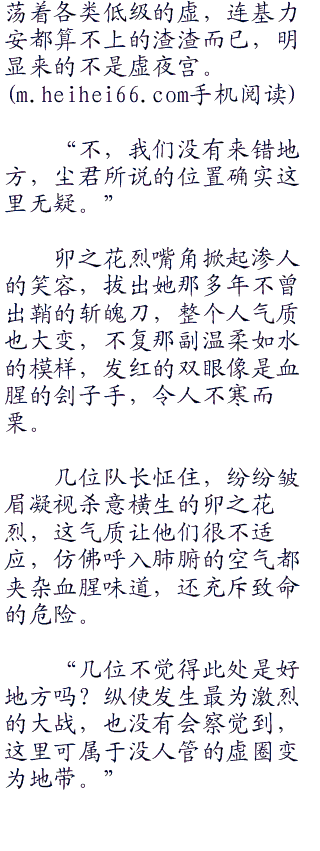 荡着各类低级的虚，连基力
安都算不上的渣渣而已，明
显来的不是虚夜宫。
(m.heihei66.com手机阅读)
“不，我们没有来错地
方，尘君所说的位置确实这
里无疑。”
卯之花烈嘴角掀起渗人
的笑容，拔出她那多年不曾
出鞘的斩魄刀，整个人气质
也大变，不复那副温柔如水
的模样，发红的双眼像是血
腥的刽子手，令人不寒而
栗。
几位队长怔住，纷纷皱
眉凝视杀意横生的卯之花
烈，这气质让他们很不适
应，仿佛呼入肺腑的空气都
夹杂血腥味道，还充斥致命
的危险。
“几位不觉得此处是好
地方吗？纵使发生最为激烈
的大战，也没有会察觉到，
这里可属于没人管的虚圈变
为地带。”